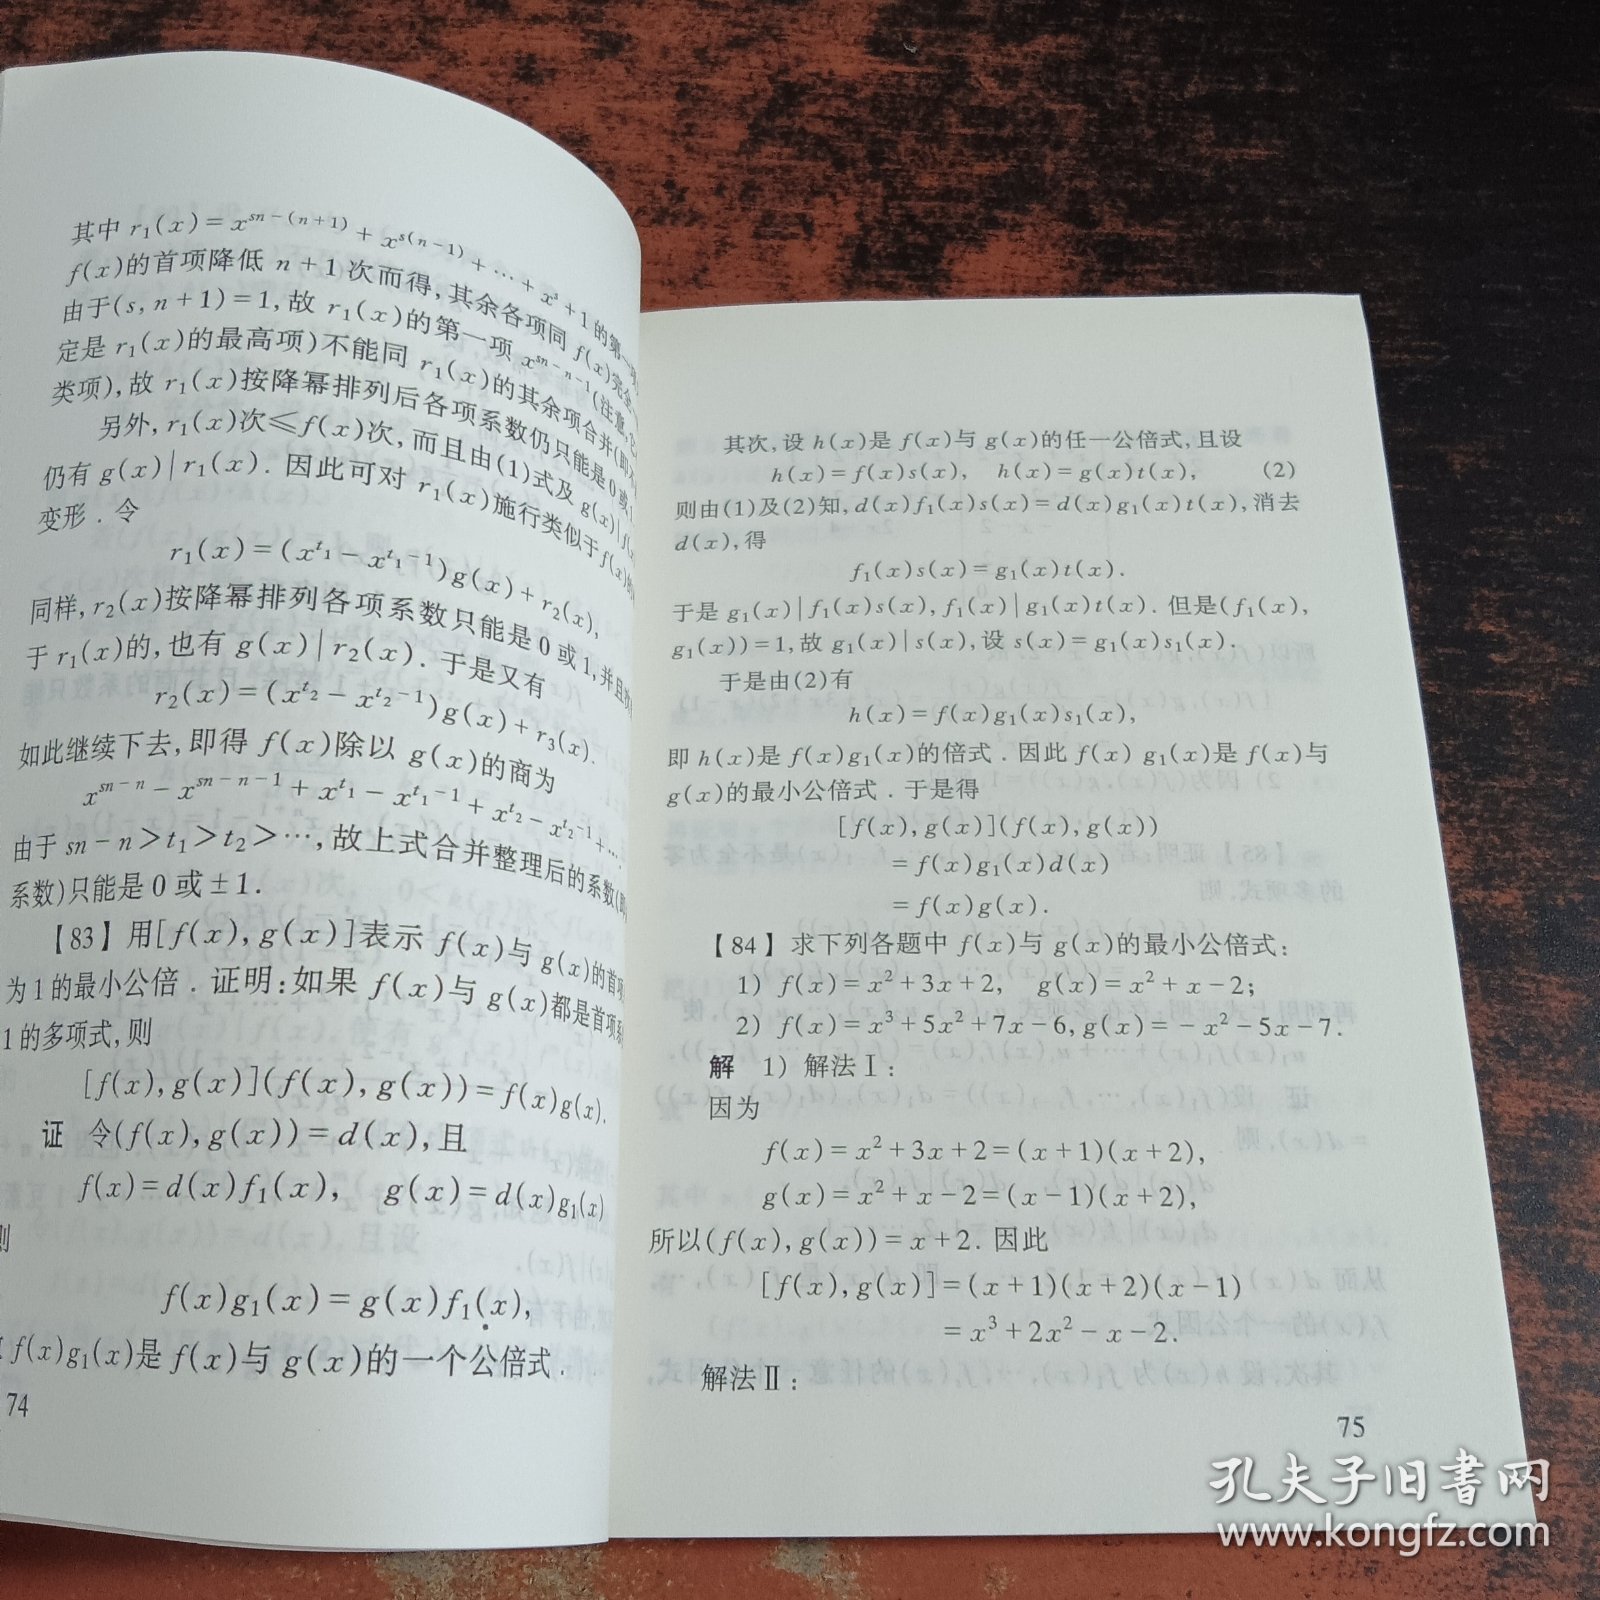 其中 r₁(x) = x^{sn-(n+1)} + x^{s(n-1)} + ⋯ + x^s + 1 的第一
f(x)的首项降低 n+1 次而得,其余各项同 f(x)完全
由于(s, n+1) = 1,故 r₁(x)的第一项 x^{sn-n-1}(注意,
定是 r₁(x)的最高项)不能同 r₁(x)的其余项合并(即
类项),故 r₁(x)按降幂排列后各项系数仍只能是0或
另外, r₁(x)次≤f(x)次,而且由(1)式及 g(x)|
仍有 g(x)|r₁(x). 因此可对 r₁(x)施行类似于 f(x)
变形. 令
r₁(x) = (x^{t₁} - x^{t₁-1})g(x) + r₂(x),
同样, r₂(x)按降幂排列各项系数只能是0或1,并且
于 r₁(x)的,也有 g(x)|r₂(x). 于是又有
r₂(x) = (x^{t₂} - x^{t₂-1})g(x) + r₃(x).
如此继续下去,即得 f(x)除以 g(x)的商为
x^{sn-n} - x^{sn-n-1} + x^{t₁} - x^{t₁-1} + x^{t₂} - x^{t₂-1} + ⋯.
由于 sn-n>t₁>t₂>⋯,故上式合并整理后的系数(
系数)只能是0或±1.
【83】用[f(x), g(x)]表示 f(x)与 g(x)的首项
为1的最小公倍. 证明:如果 f(x)与 g(x)都是首项系
1的多项式,则
[f(x), g(x)](f(x), g(x)) = f(x)g(x).
证 令(f(x), g(x)) = d(x),且
f(x) = d(x)f₁(x), g(x) = d(x)g₁(x)
则
f(x)g₁(x) = g(x)f₁(x),
f(x)g₁(x)是 f(x)与 g(x)的一个公倍式.
74
其次,设 h(x)是 f(x)与 g(x)的任一公倍式,且设
h(x) = f(x)s(x), h(x) = g(x)t(x), (2)
则由(1)及(2)知, d(x)f₁(x)s(x) = d(x)g₁(x)t(x),消去
d(x),得
f₁(x)s(x) = g₁(x)t(x).
于是 g₁(x)|f₁(x)s(x), f₁(x)|g₁(x)t(x). 但是(f₁(x),
g₁(x)) = 1,故 g₁(x)|s(x),设 s(x) = g₁(x)s₁(x).
于是由(2)有
h(x) = f(x)g₁(x)s₁(x),
即 h(x)是 f(x)g₁(x)的倍式. 因此 f(x) g₁(x)是 f(x)与
g(x)的最小公倍式. 于是得
[f(x), g(x)](f(x), g(x))
= f(x)g₁(x)d(x)
= f(x)g(x).
【84】求下列各题中 f(x)与 g(x)的最小公倍式:
1) f(x) = x²+3x+2, g(x) = x²+x-2;
2) f(x) = x³+5x²+7x-6, g(x) = -x²-5x-7.
解 1) 解法Ⅰ:
因为
f(x) = x²+3x+2 = (x+1)(x+2),
g(x) = x²+x-2 = (x-1)(x+2),
所以(f(x), g(x)) = x+2. 因此
[f(x), g(x)] = (x+1)(x+2)(x-1)
= x³+2x²-x-2.
解法Ⅱ:
75
孔夫子旧书网
www.kongfz.com